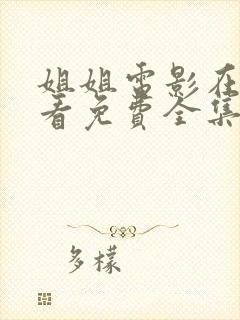 姐姐電影在
看免費全集
多樣